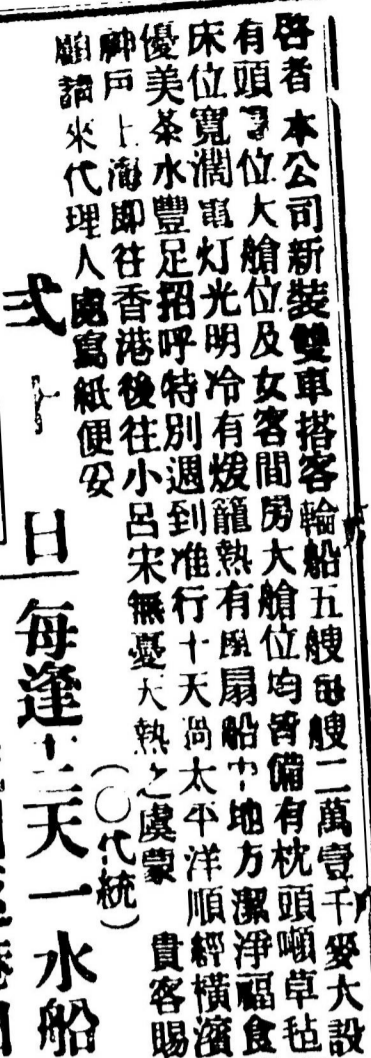 啓者本公司新裝雙車搭客輪船五艘每艘二萬壹千嚶大設
有頭等位大艙位及女客間房大艙位均皆備有枕頭啣草毡
床位寬濶電灯光明冷有煖籠熱有風扇船中地方潔淨福食
優美茶水豐足招呼特別週到准行十天過太平洋順經橫濱
神戶上海卽往香港後往小呂宋無憂大熱之虞蒙 貴客賜
顧請來代理人處寫紙便妥 (〇代統)
弍十 日 每逢十二天一水船